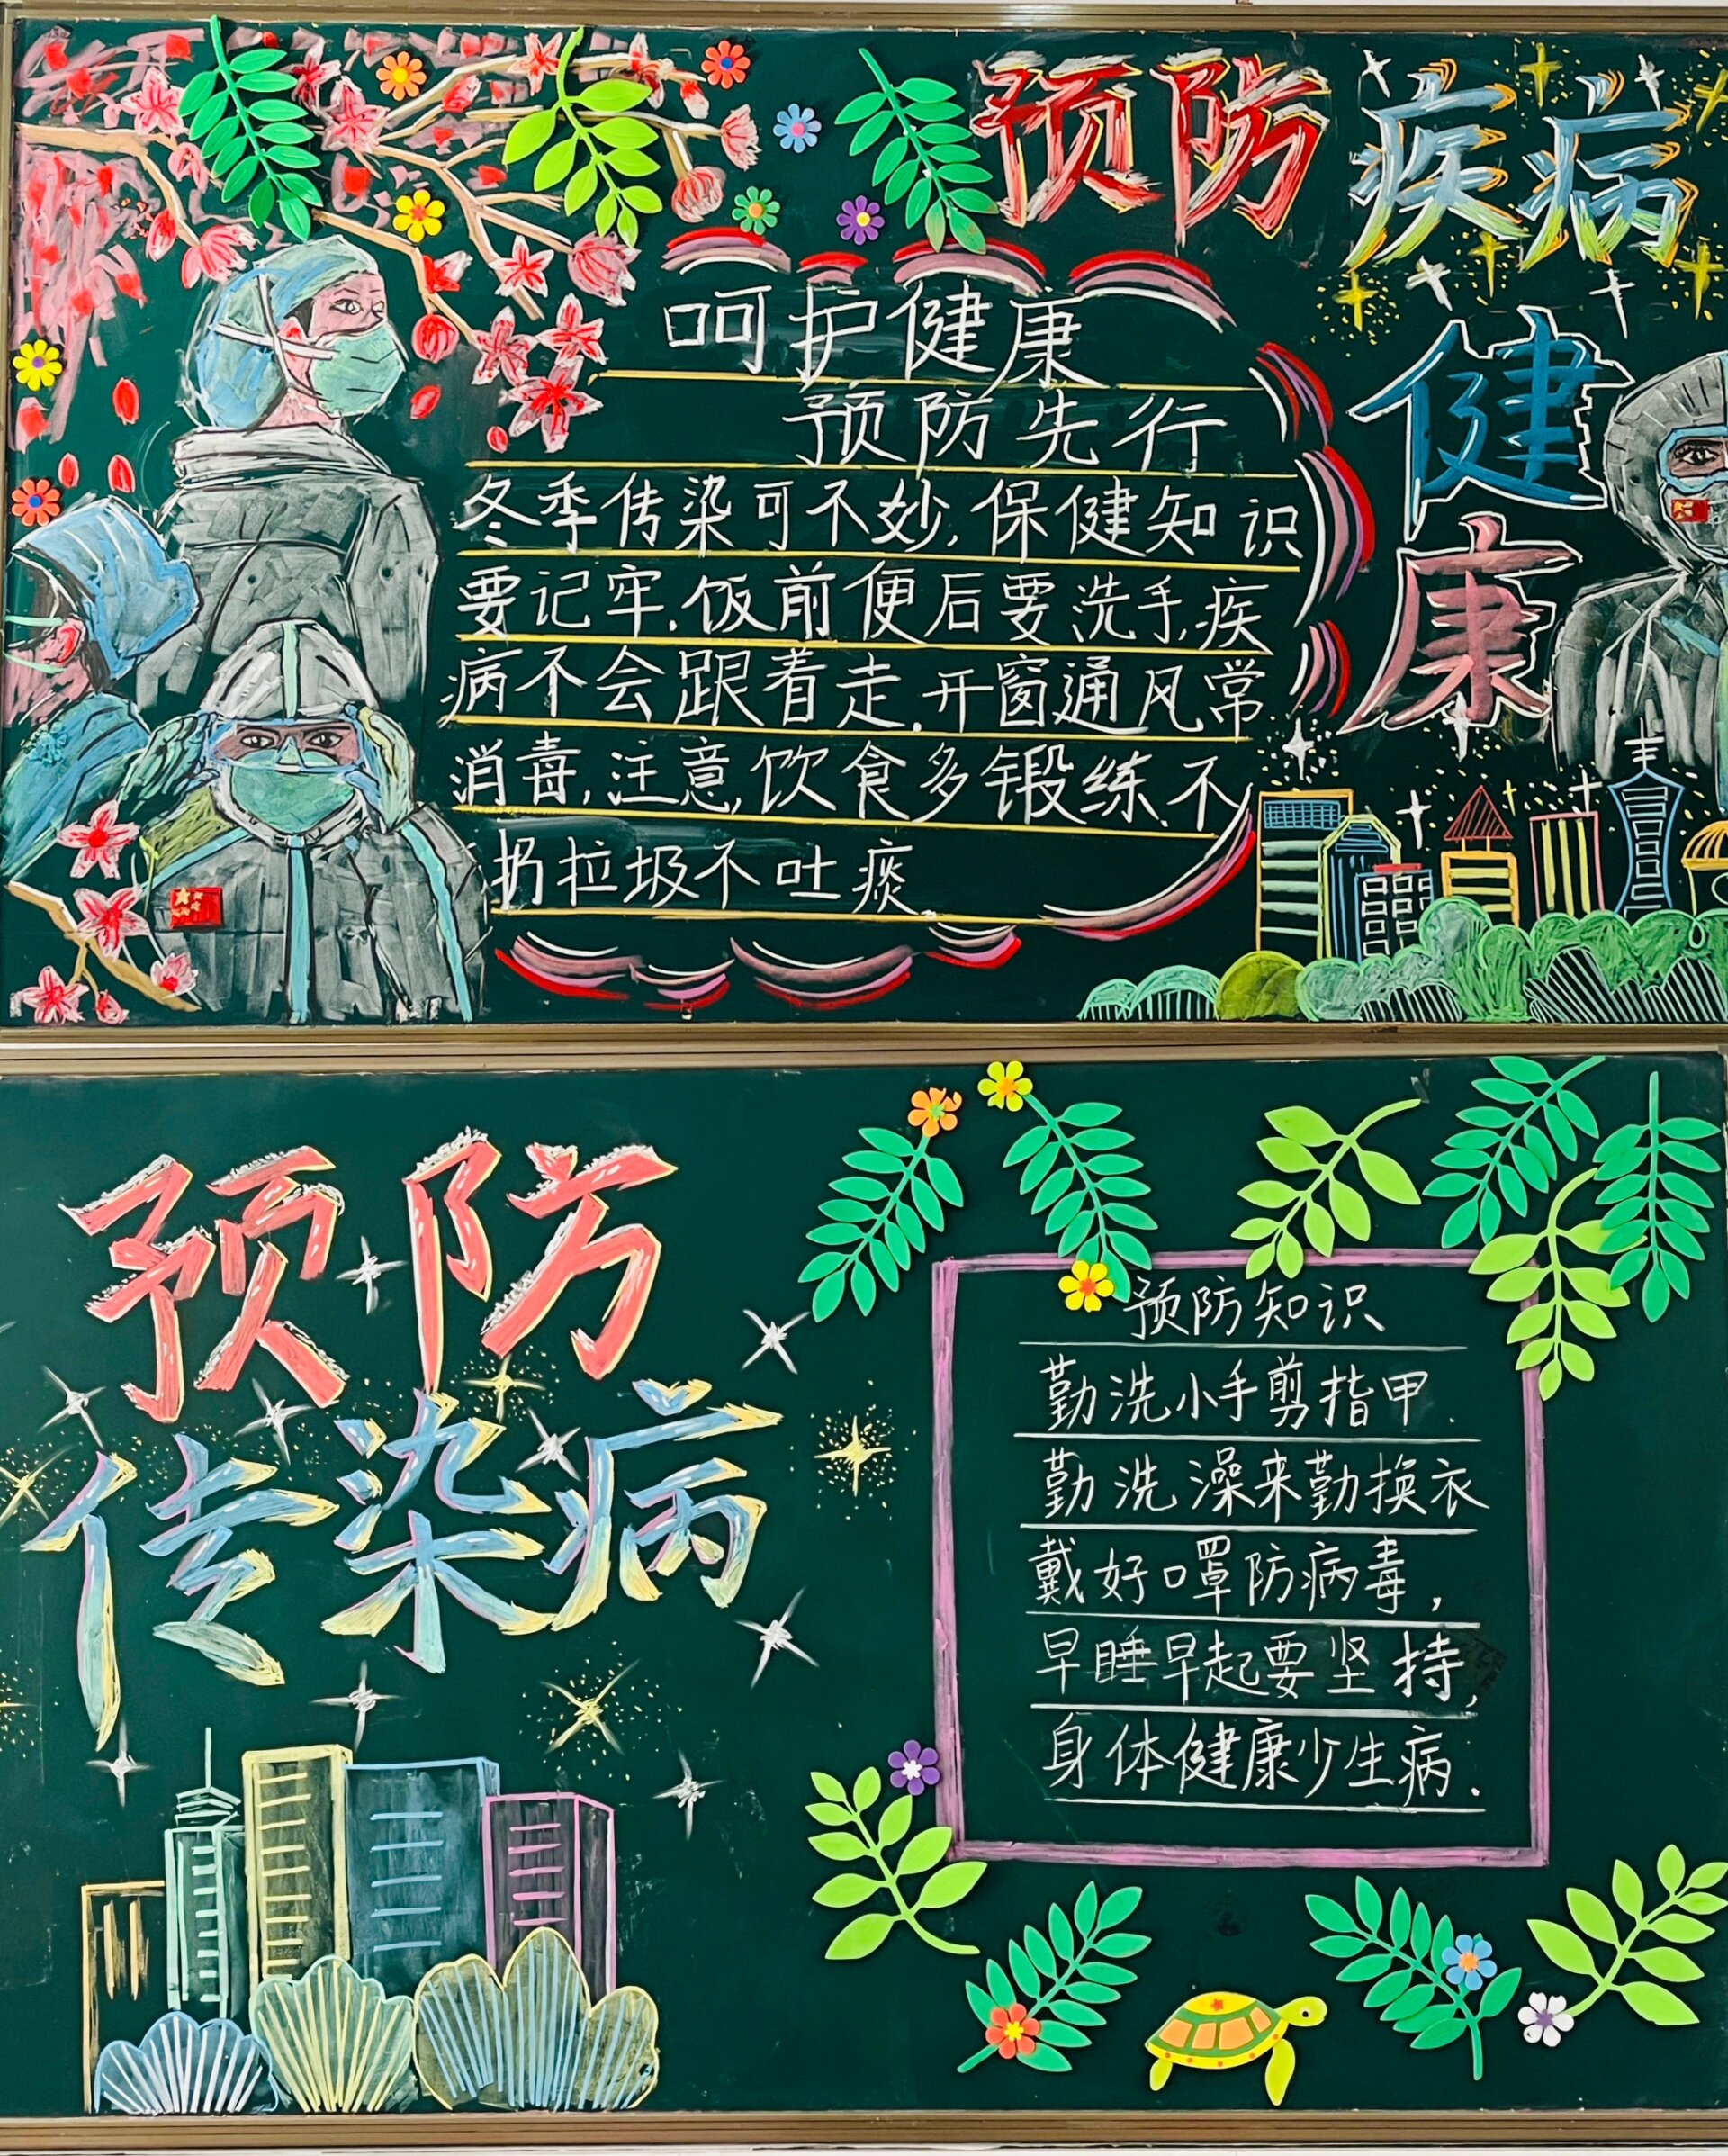 预防疾病
健康
呵护健康
预防先行
冬季传染可不妙,保健知识
要记牢.饭前便后要洗手,疾
病不会跟着走.开窗通风常
消毒,注意,饮食多锻练.不
扔拉圾不吐痰.
预防
传染病
预防知识
勤洗小手剪指甲.
勤洗澡来勤换衣
戴好口罩防病毒,
早睡早起要坚持,
身体健康少生病.